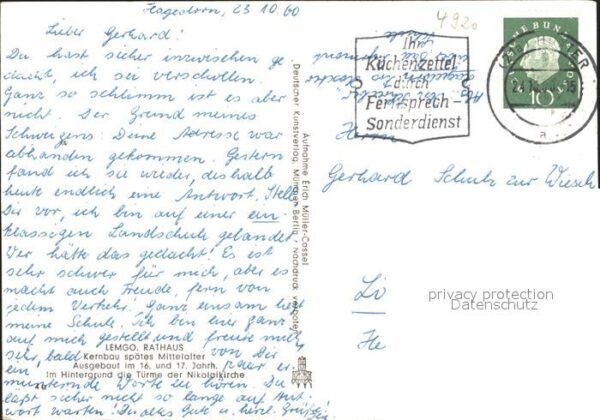 Hagedorn, 23.10.60
Lieber Gerhard!
Du hast sicher inzwischen ge-
dacht, ich sei verschollen.
Ganz so schlimm ist es aber
nicht. Der Grund meines
Schweigens: Deine Adresse war
abhanden gekommen. Gestern
fand ich sie wieder, deshalb
heute endlich eine Antwort. Stelle
Dir vor, ich bin auf einer ein-
klassigen Landschule gelandet.
Wer hätte das gedacht! Es ist
sehr schwer für mich, aber es
macht auch Freude, fern von
jedem Verkehr. Ganz einsam liegt
meine Schule. Ich bin hier ganz
auf mich gestellt und freute mich
sehr, bald von Dir
ein paar er-
munternde Worte zu hören. Du
läßt sicher nicht so lange auf Ant-
wort warten. Dir alles Gute u. herzl. Grüße
LEMGO. RATHAUS
Kernbau spätes Mittelalter
Ausgebaut im 16. und 17. Jahrh.
Im Hintergrund die Türme der Nikolaikirche
Aufnahme Erich Müller-Cassel
Deutscher Kunstverlag, München Berlin - Nachdruck verboten
4920
Ihr
Küchenzettel
durch
Fernsprech-
Sonderdienst
10
a
Herrn
Gerhard Schulz zur Wiesch
privacy protection
Datenschutz